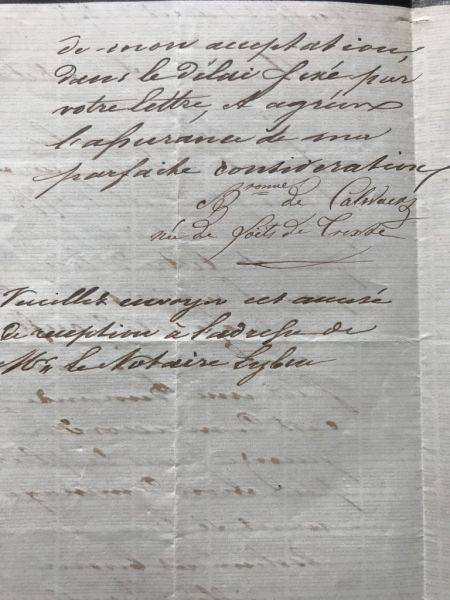 de mon acceptation,
dans le délai fixé par
votre lettre, et agréez
l'assurance de ma
parfaite considération,
Bronne de
née de de
Veuillez envoyer cet accusé
de reception à l'adresse de
Mr le Notaire